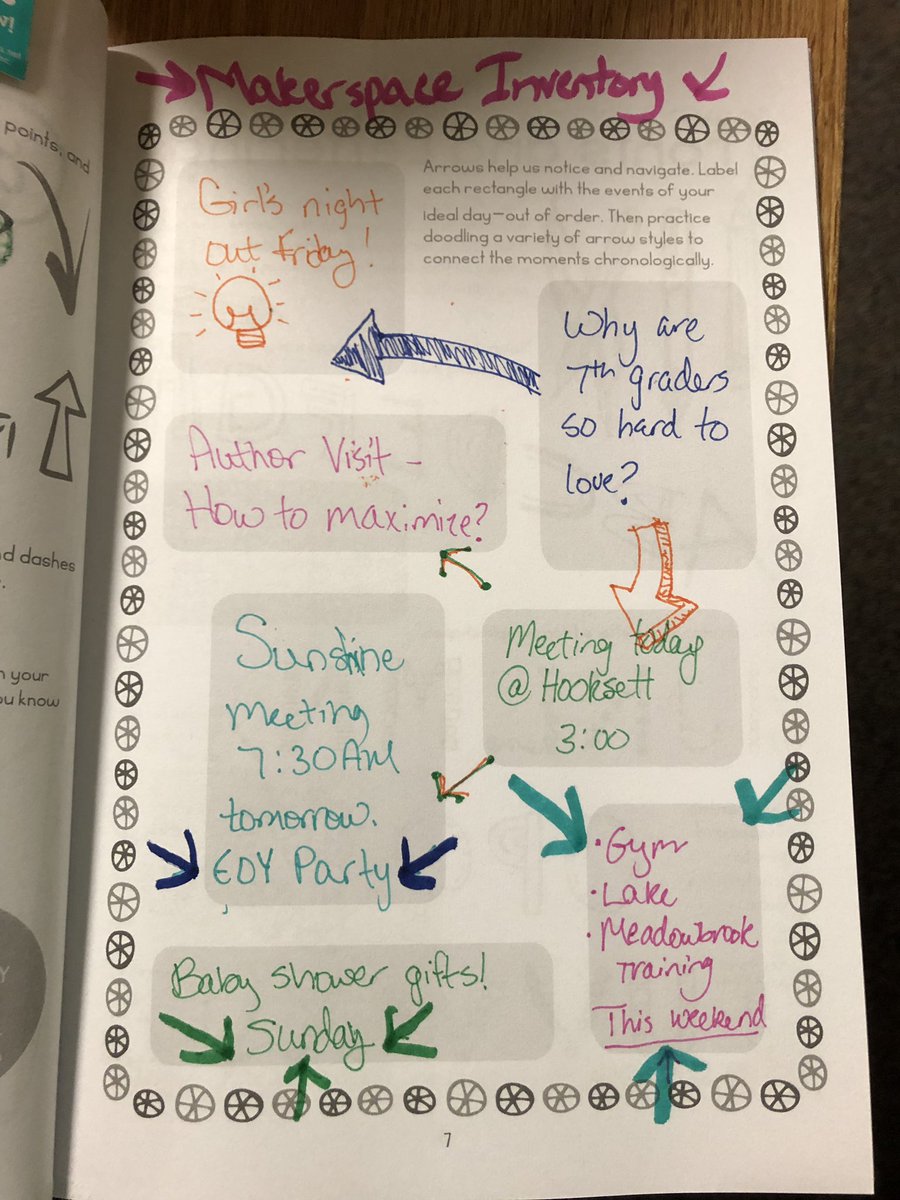 w!
points, and
d dashes
n your
ou know
Makerspace Inventory
Arrows help us notice and navigate. Label
each rectangle with the events of your
ideal day—out of order. Then practice
doodling a variety of arrow styles to
connect the moments chronologically.
Girl's night
out Friday!
Why are
7th graders
so hard to
love?
Author Visit -
How to maximize?
Meeting today
@ Hooksett
3:00
Sunshine
meeting
7:30 AM
tomorrow.
EOY Party
• Gym
• Lake
• Meadowbrook
Training
This weekend
Baby shower gifts!
Sunday
7